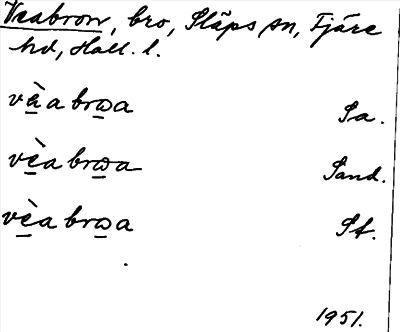 Veabron, bro, Släps sn, Fjäre
hd, Hall. l.
vèa brωa Sa.
vèa brωa Sand.
vèa brωa St.
1951.